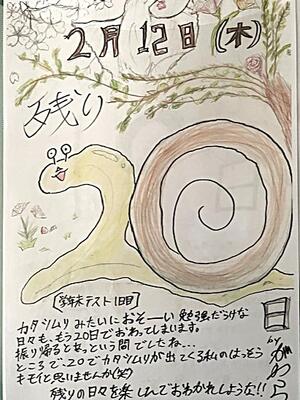 2月12日(木)
残り
20
日
by かわむら
[学年末テスト1日目]
カタツムリみたいにおそーい勉強だらけな
日々も、もう20日でおわってしまいます。
振り帰るとあっという間でしたね…
ところで、20でカタツムリが出てくる私のはっそう
キモイと思いませんか(笑)
残りの日々を楽しんでおわかれしような!!